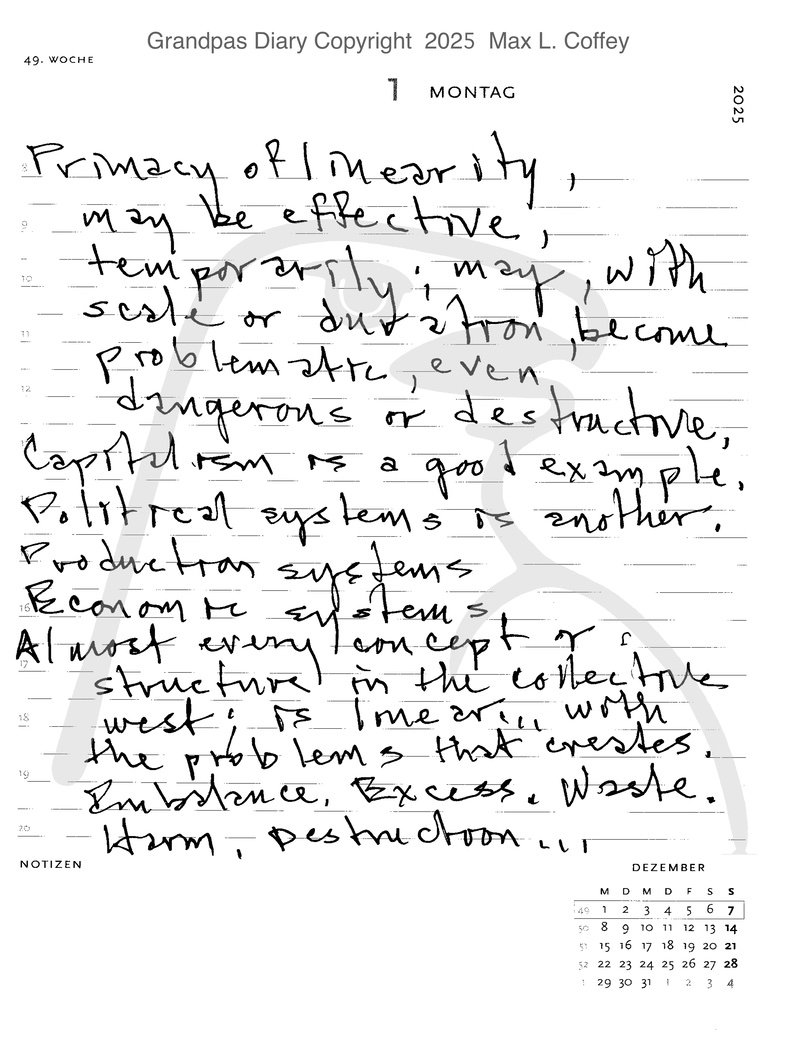 Grandpas Diary Copyright 2025 Max L. Coffey
49. WOCHE
1 MONTAG
2025
8 Primacy of linearity,
9 may be effective,
10 temporarily; may, with
scale or duration, become
11 problematic, even
12 dangerous or destructive,
Capitalism is a good example.
Political systems is another.
Production systems
16 Economic systems
Almost every concept or
17 structure in the collective
18 west; is linear... with
the problems that creates.
19 Imbalance. Excess. Waste.
20 Harm. Destruction...
NOTIZEN
DEZEMBER
M D M D F S S
49 1 2 3 4 5 6 7
50 8 9 10 11 12 13 14
51 15 16 17 18 19 20 21
52 22 23 24 25 26 27 28
1 29 30 31 1 2 3 4